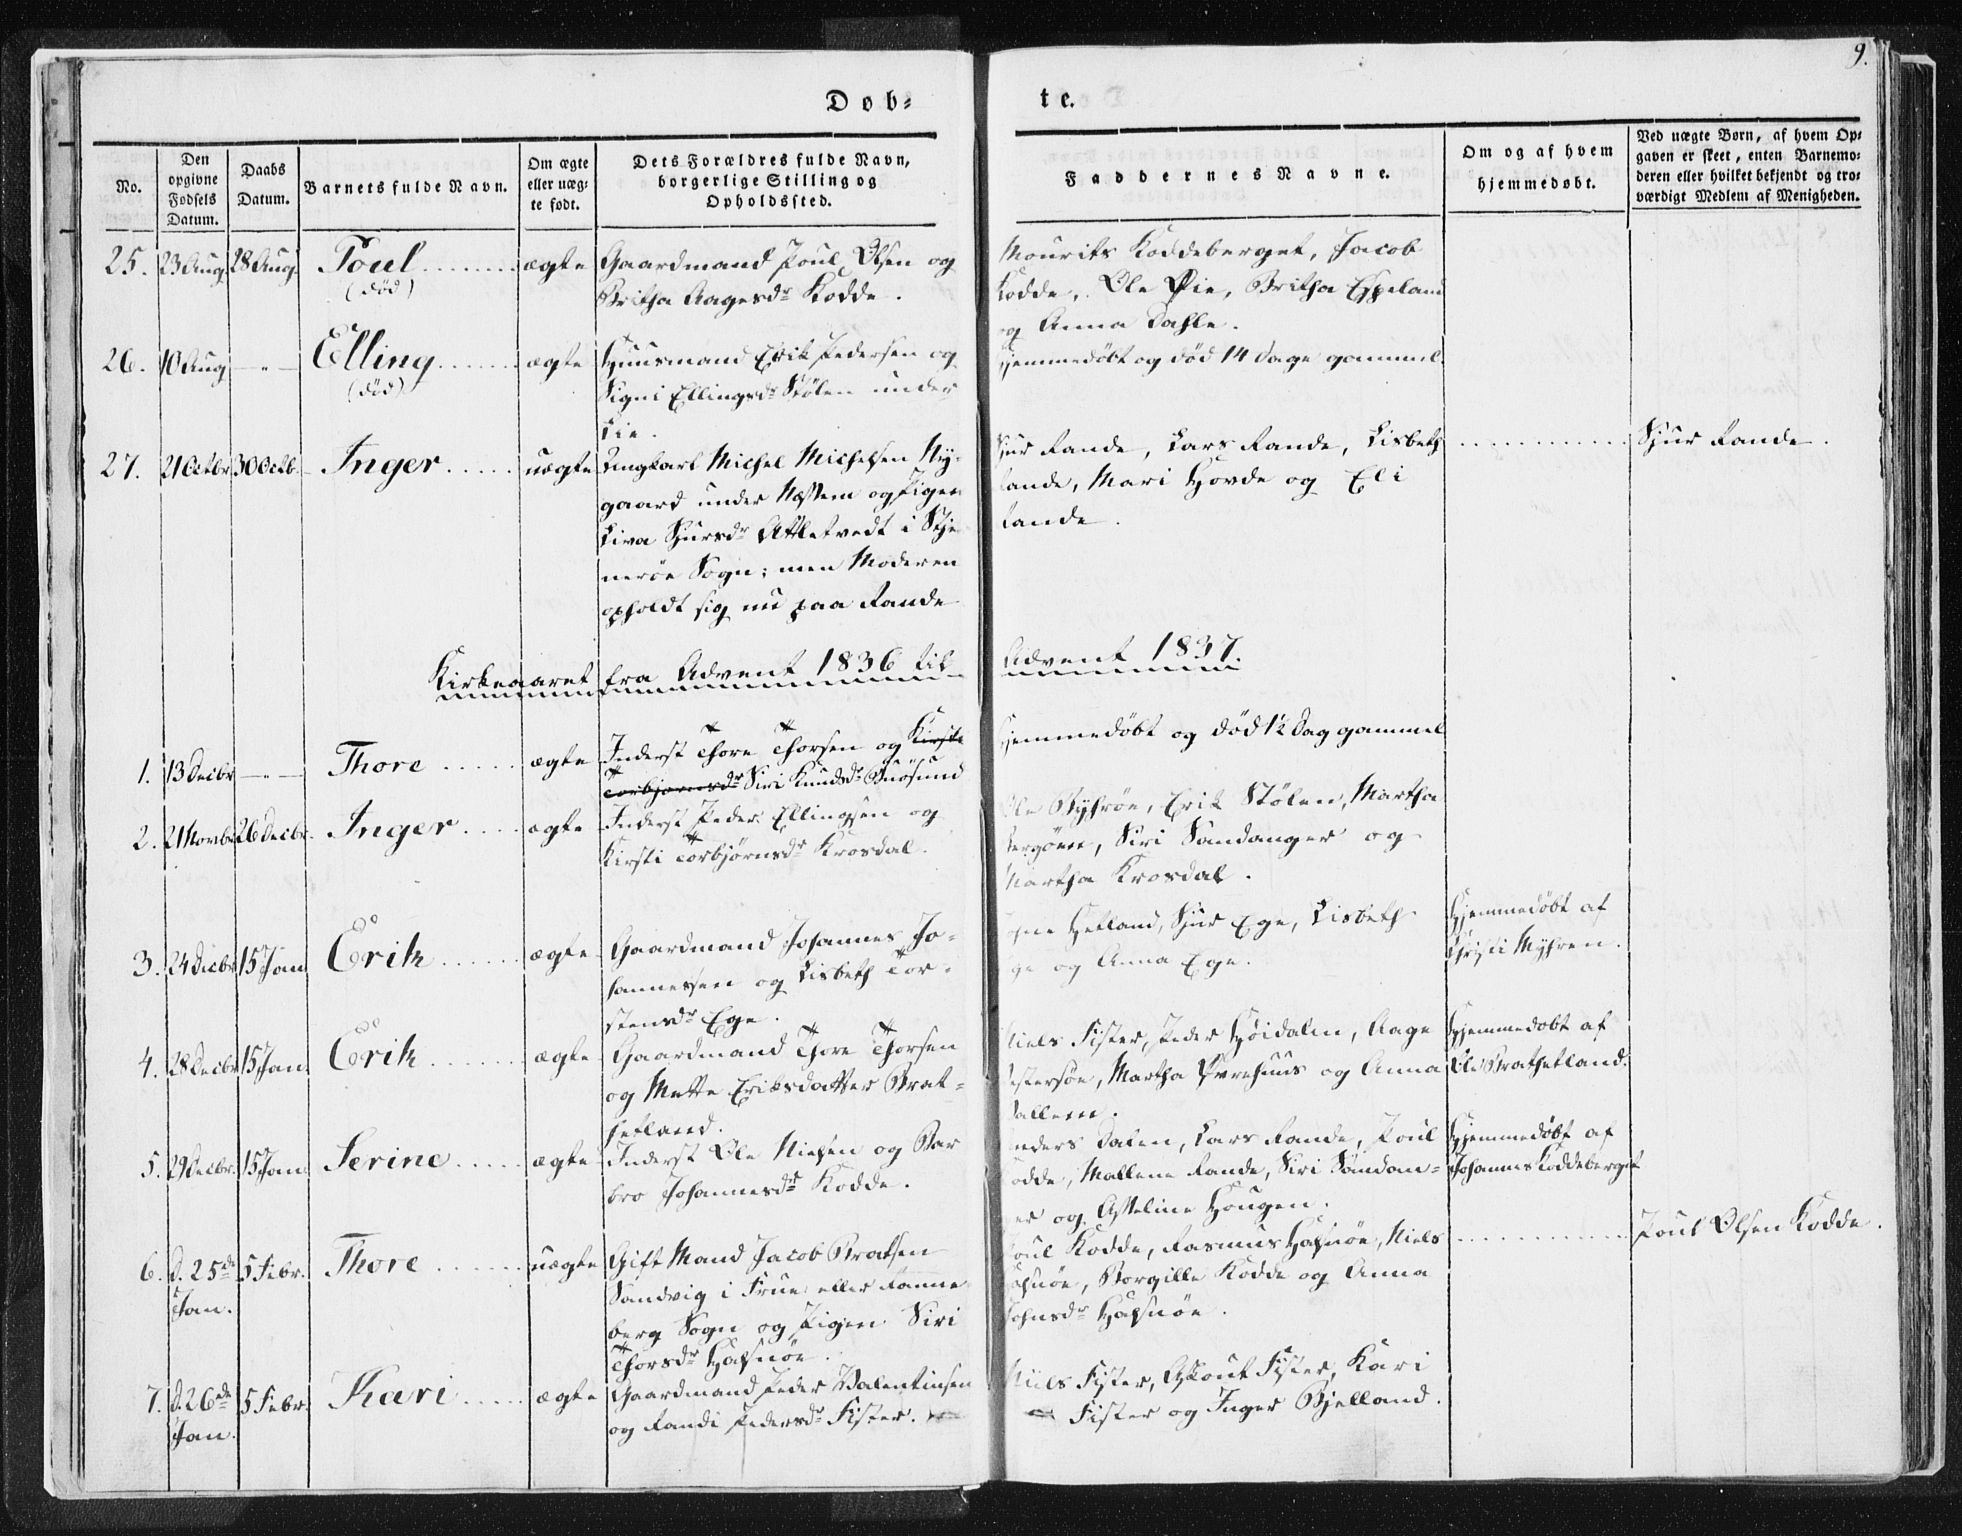 9.
Døb-
te.
No.
Den opgivne Fødsels Datum.
Daabs Datum.
Barnets fulde Navn.
Om ægte eller uægte født.
Dets Forældres fulde Navn, borgerlige Stilling og Opholdssted.
Faddernes Navne.
Om og af hvem hjemmedøbt.
Ved uægte Børn, af hvem Opgaven er skeet, enten Barnemoderen eller hvilket bekjendt og troværdigt Medlem af Menigheden.
25. 23 Aug 28 Aug Poul ægte Gaardmand Poul Olsen og
(død) Britha Aagesdr Kodde.
Mourits Koddeberget, Jacob
Kodde, Ole Øie, Britha Espeland
og Anna Dahle.
26. 10 Aug — " — Elling ægte Huusmand Erik Pedersen og
(død) Signi Ellingsdr Stølen under
Lie.
Hjemmedøbt og død 14 Dage gammel.
27. 21 Octbr 30 Octb. Inger uægte Ungkarl Michel Michelsen Ny-
gaard under Næssem og Pigen
Liva Sjursdr Attletvedt i Skje-
nerøe Sogn; men Moderen
opholdt sig nu paa Rande
Sjur Rande, Lars Rande, Lisbeth
Rande, Mari Hovde og Eli
Rande.
Sjur Rande.
Kirkeaaret fra Advent 1836 til Advent 1837.
1. 13 Decbr — " — Thore ægte Inderst Thore Thorsen og Kirsti
Torbjørnsdr Siri Knudsdr Buøsund
Hjemmedøbt og død 1½ Dag gammel
2. 21 Novbr 26 Decbr. Inger ægte Inderst Peder Ellingsen og
Kirsti Torbjørnsdr Krosdal.
Ole Byhrøe, Erik Stølen, Martha
Bergøen, Siri Sandanger og
Martha Krosdal.
3. 24 Decbr 15 Jan Erik ægte Gaardmand Johannes Jo-
hannessen og Lisbeth Tor-
stensdr Ege.
Hetland, Sjur Ege, Lisbeth
Ege og Anna Ege.
Hjemmedøbt af
Christi Myhren.
4. 28 Decbr 15 Jan. Erik ægte Gaardmand Thore Thorsen
og Mette Eriksdatter Brat-
hetland.
Niels Fister, Peder Høidalen, Aage
Vestersøe, Martha Pyrehuus og Anna
Hallem.
Hjemmedøbt af
Ole Brathetland.
5. 29 Decbr. 15 Jan. Serine ægte Inderst Ole Nielsen og Bar
bro Johannesdr Kodde.
Anders Dalen, Lars Rande, Poul
Kodde, Mallene Rande, Siri Sandan-
ger og Asseline Hougen.
Hjemmedøbt af
Johannes Koddeberget
6. d. 25de 5 Febr. Thore uægte Gift Mand Jacob Bratsen
Jan. Sandvig i Frue eller Rønne
berg Sogn og Pigen Siri
Thorsdr Hafsnøe.
Poul Kodde, Rasmus Hafsnøe, Niels
Hafsnøe, Borgille Kodde og Anna
Johnsdr Hafsnøe.
Poul Olsen Kodde.
7. d. 26de 5 Febr. Kari ægte Gaardmand Peder Valentinsen
Jan. og Randi Pedersdr Fister.
Niels Fister, Askout Fister, Kari
Fister og Inger Bjelland.